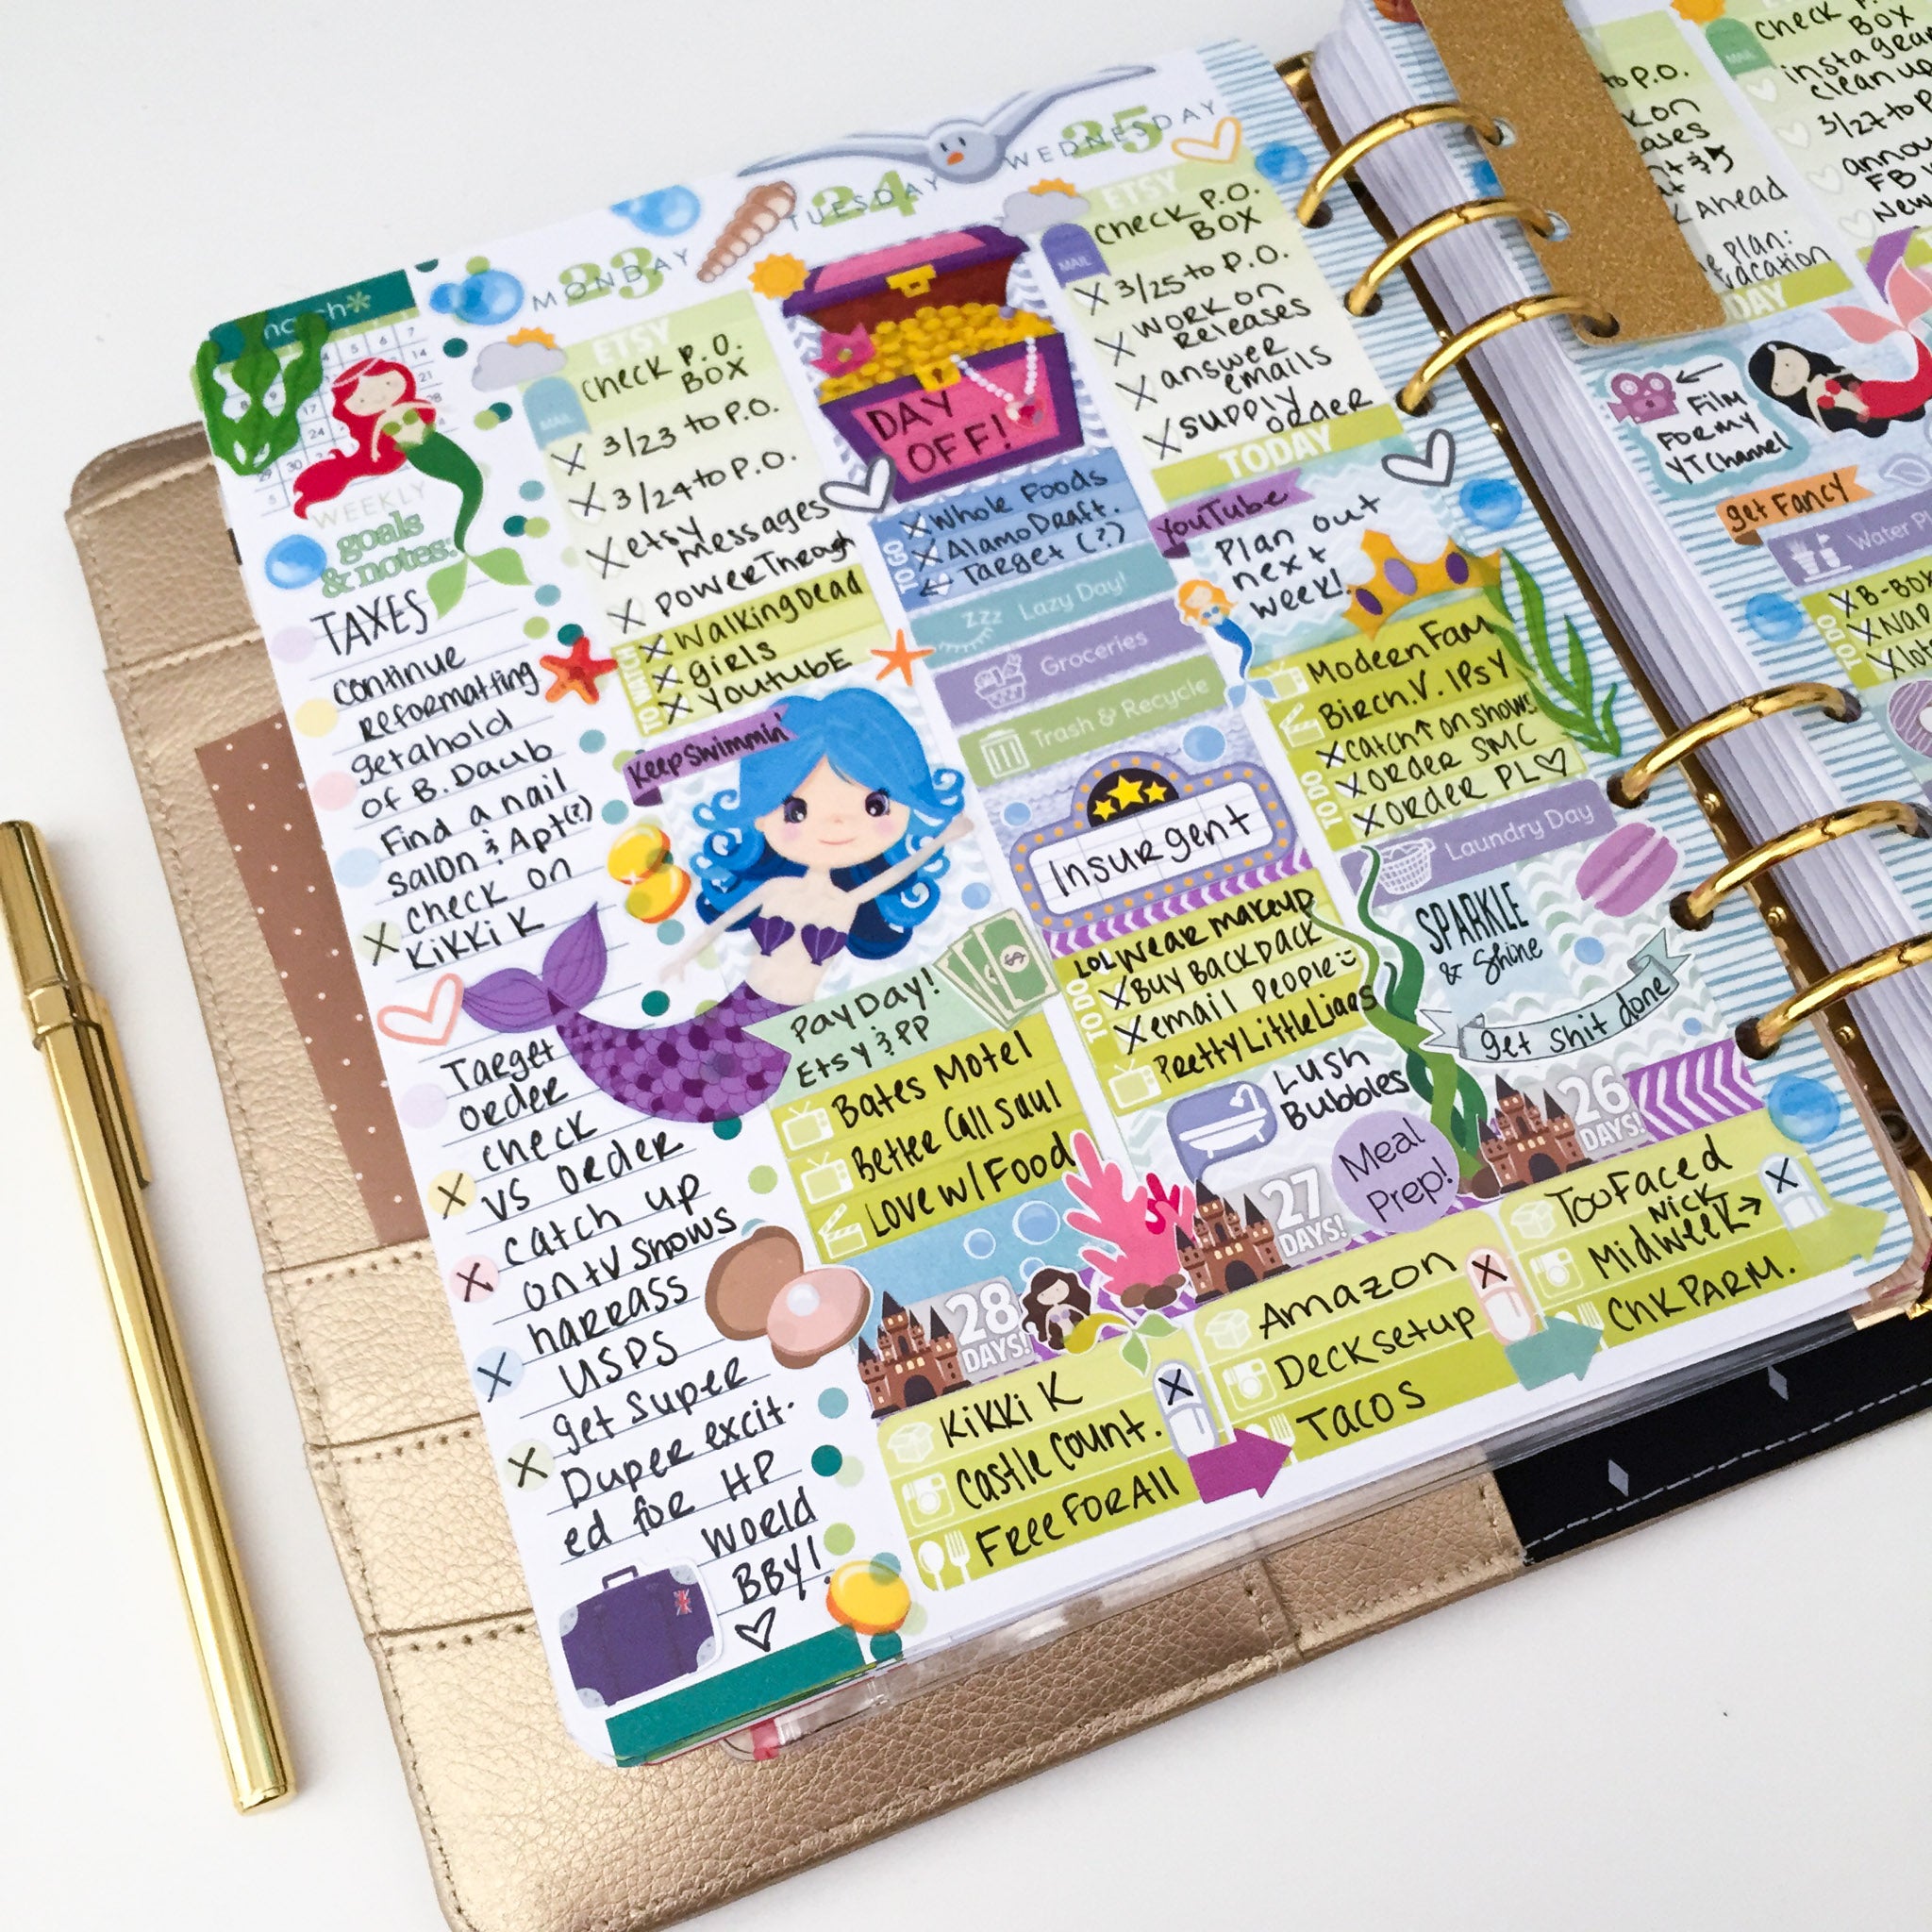 march*
WEEKLY
goals
& notes:
TAXES
continue
reformatting
get ahold
of B. Daub
Find a nail
salon & Apt(?)
X check on
Kikki K
Target
order
X check
VS order
X catch up
on tv shows
X harrass
USPS
X get super
Duper excit-
ed for HP
World
BBY!
MONDAY
23
ETSY
check P.O.
BOX
MAIL
X 3/23 to P.O.
X 3/24 to P.O.
X etsy
messages
X power through
TO WATCH
X Walking Dead
X girls
X Youtube
Keep Swimmin'
Pay Day!
Etsy & PP
Bates Motel
Better Call Saul
Love w/ Food
28
DAYS!
Kikki K
Castle Count.
X
Free For All
TUESDAY
24
DAY
OFF!
TO GO
X Whole Foods
X Alamo Draft.
← Target (?)
zzz Lazy Day!
Groceries
Trash & Recycle
Insurgent
TO DO
LOL Wear makeup
X Buy Backpack
X email people
Pretty Little Liars
Lush
Bubbles
Meal
Prep!
27
DAYS!
Amazon
X
Deck setup
Tacos
WEDNESDAY
25
ETSY
check P.O.
BOX
MAIL
X 3/25 to P.O.
X Work on
Releases
X answer
emails
X supply
order
TODAY
YouTube
Plan out
next
week!
Modern Fam
Birch V. IPSY
TO DO
X catch ↑ on shows
X order SMC
X order PL
Laundry Day
SPARKLE
& Shine
get shit done
26
DAYS!
Too Faced
X
Nick
Midweek →
CHK PARM.
to P.O.
Ahead
plan:
vacation
DAY
Film
FOR MY
YT Channel
get Fancy
Water
TO DO
X B-Box
check P.
BOX
MAIL
insta gear
clean up
3/27 to P
FB
New